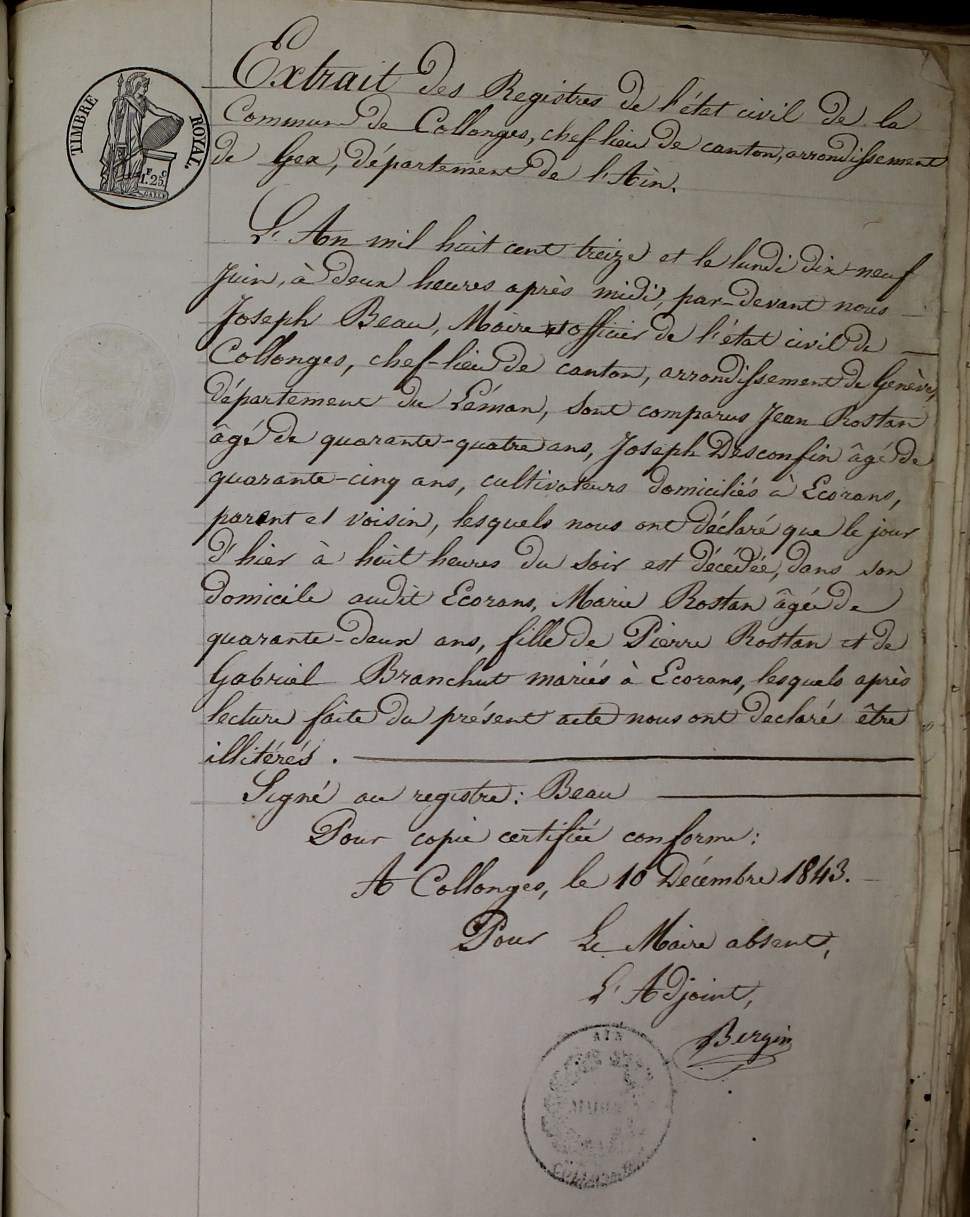 TIMBRE ROYAL.
F. C.
1.25
Extrait des Registres de l'état civil de la
Commune de Collonges, chef-lieu de canton, arrondissement
de Gex, département de l'Ain.
L'An mil huit cent treize et le lundi dix-neuf
Juin, à deux heures après midi, par-devant nous
Joseph Beau, Maire et officier de l'état civil de
Collonges, chef-lieu de canton, arrondissement de Genève,
département du Léman, sont comparus Jean Rostan
âgé de quarante-quatre ans, Joseph Desconfin âgé de
quarante-cinq ans, cultivateurs domiciliés à Ecorans,
parent et voisin, lesquels nous ont déclaré que le jour
d'hier à huit heures du soir est décédée, dans son
domicile audit Ecorans, Marie Rostan âgée de
quarante-deux ans, fille de Pierre Rostan et de
Gabriel Branchut mariés à Ecorans, lesquels après
lecture faite du présent acte nous ont declaré être
illitérés.
Signé au registre: Beau
Pour copie certifiée conforme:
A Collonges, le 10 Décembre 1843.
Pour Le Maire absent,
L'Adjoint,
Bergin
AIN
MAIRIE